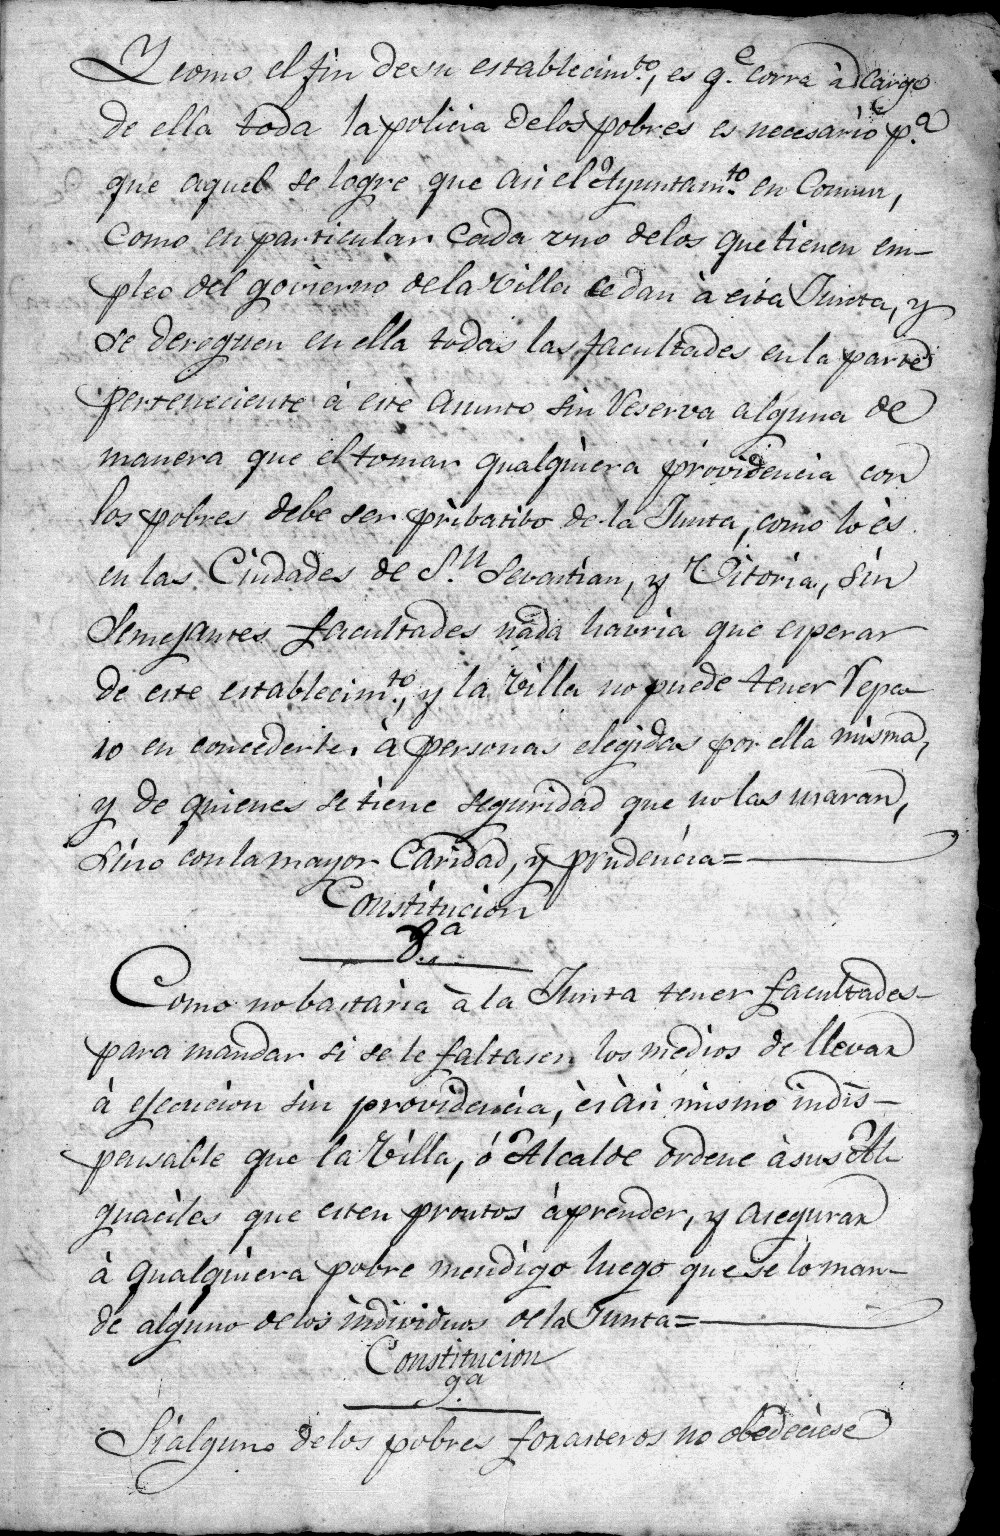 Y como el fin de su establecim.to, es q.e corra à cargo
de ella toda la policia delos pobres es necesario p.a
que aquel se logre que asi el Ayuntam.to en Comun,
como en particular cada uno delos que tienen em-
pleo del govierno dela Villa cedan à esta Junta, y
se deroguen en ella todas las facultades en la parte
perteneciente à este Asunto sin reserva alguna de
manera que el tomar qualquiera providencia con
los pobres debe ser pribatibo de la Junta, como lo ès
en las Ciudades de S.n Sevastian, y Vitoria, sin
semejantes facultades nada havria que esperar
de este establecim.to, y la Villa no puede tener repa-
ro en concederle à personas elegidas por ella misma,
y de quienes se tiene seguridad que no las usaran,
sino con la mayor Caridad, y prudencia=
Constitucion
8.a
Como no bastaria à la Junta tener facultades-
para mandar si se le faltasen los medios de llevar
à ejecucion sin providencia, és àsi mismo indis-
pensable que la Villa, ó Alcalde ordene à sus Al-
guaciles que esten prontos àprender, y asegurar
à qualquiera pobre mendigo luego que se lo man-
de alguno delos individuos dela Junta=
Constitucion
9.a
Si alguno delos pobres forasteros no obedeciese